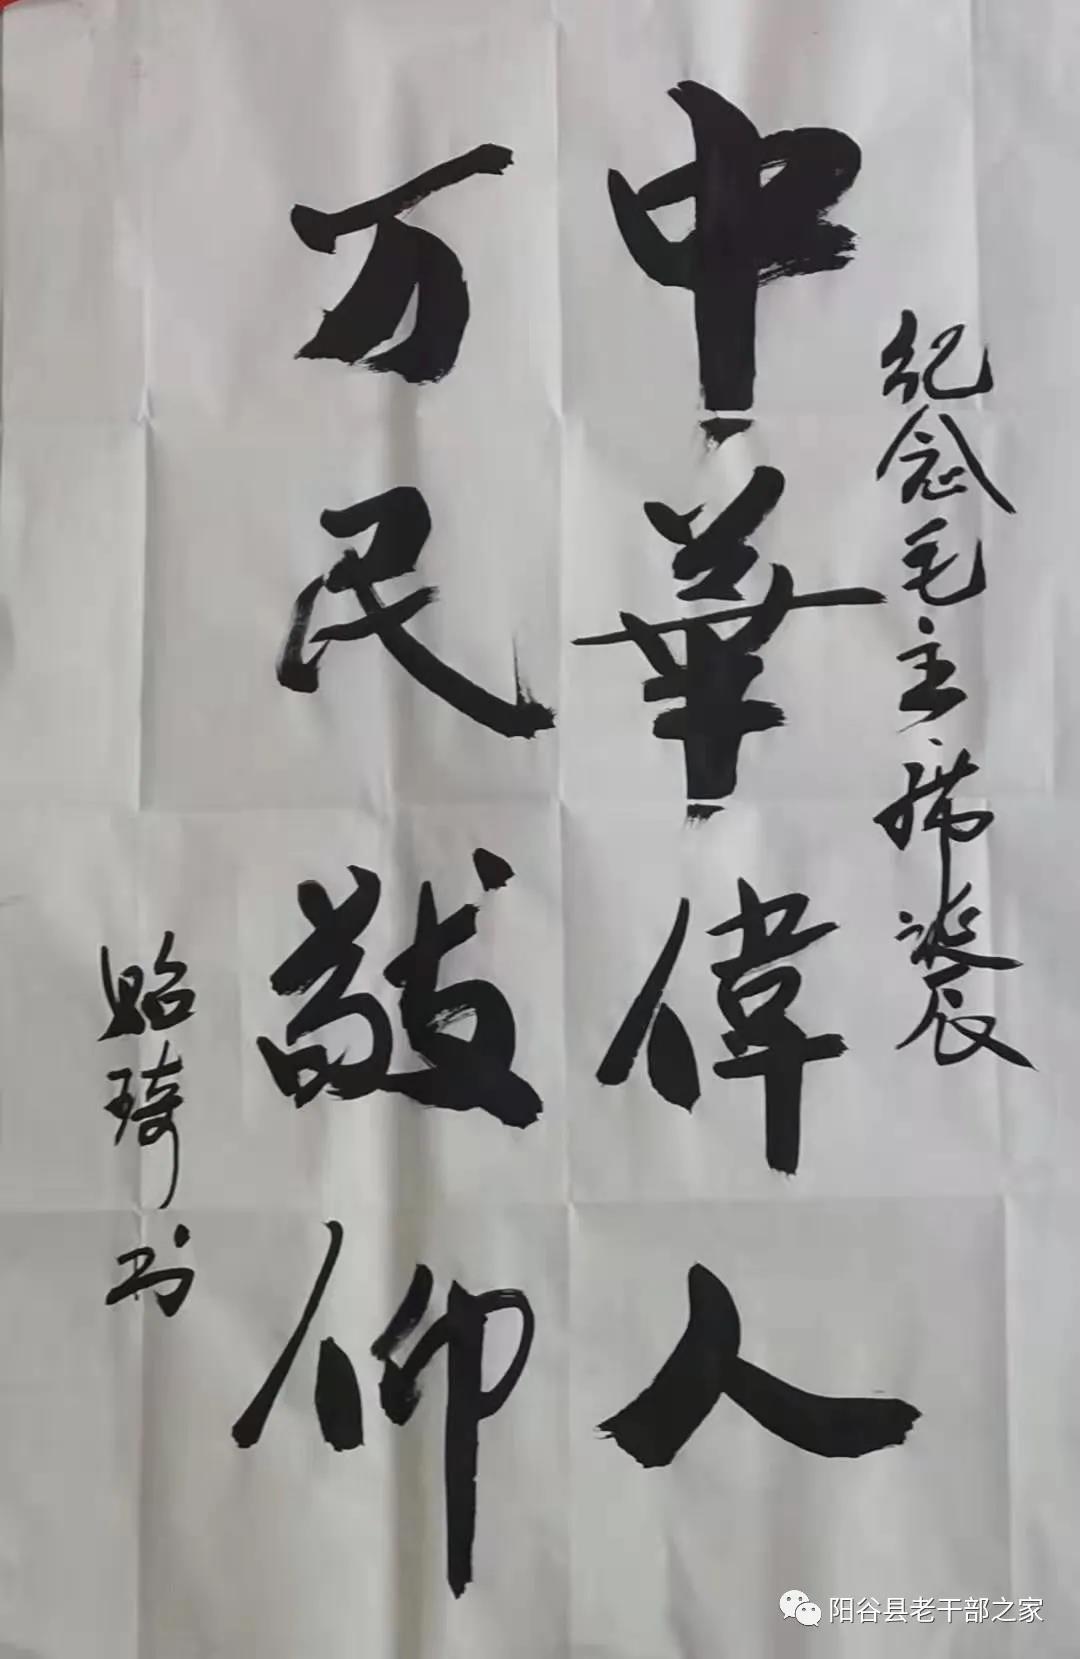 纪念毛主席诞辰
中華偉人
万民敬仰
贻琦书
阳谷县老干部之家